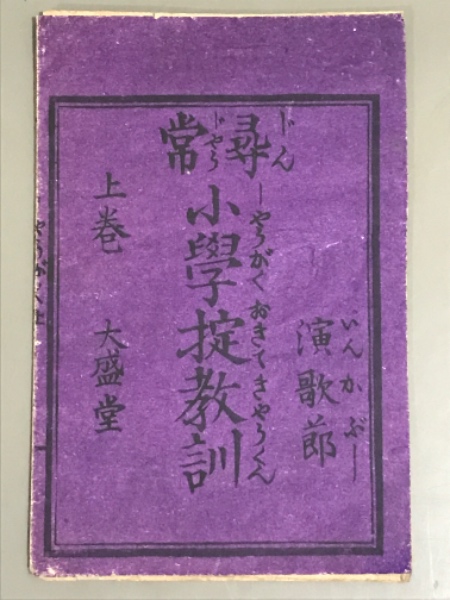 尋常
じん
じやう
演歌莭
いんかぶし
小學掟教訓
しやうがくおきてきやうくん
上巻
大盛堂